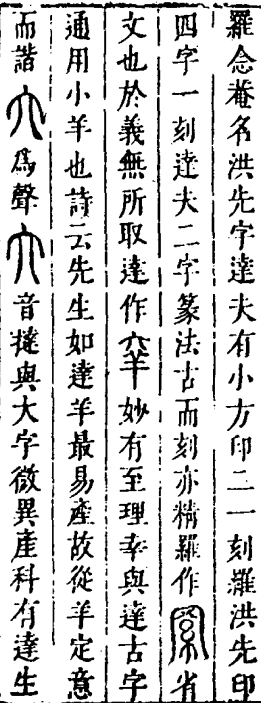 羅念菴名洪先字達夫有小方印二一刻羅洪先印
四字一刻達夫二字篆法古而刻亦精羅作省
文也於義無所取達作羍妙有至理幸與達古字
通用小羊也詩云先生如達羊最易產故從羊定意
而諧大爲聲大音撻與大字微異產科有達生